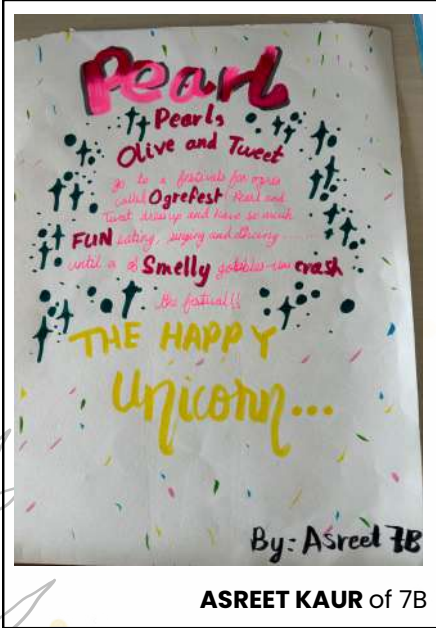 Pearl
Pearls
Olive and Tweet
go to a festivals for ogres
called Ogrefest Pearl and
Tweet dress up and have so much
FUN eating, singing and dancing......
until a Smelly crash
the festival!!
THE HAPPY
Unicorn...
By: Asreet 7B
ASREET KAUR of 7B